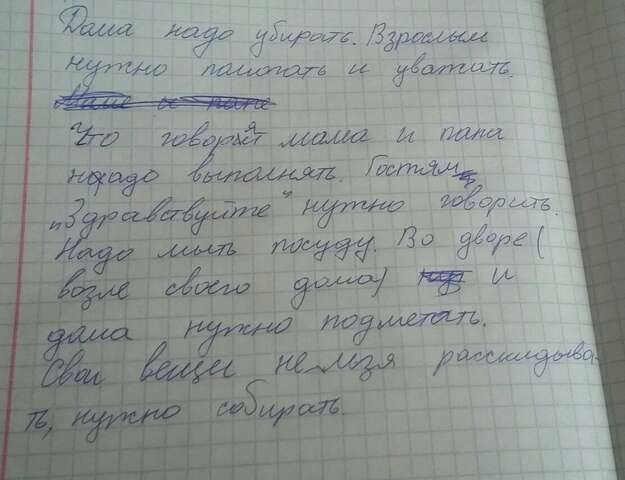 Дома надо убирать. Взрослым
нужно помогать и уважать.
Маме и папе
Что говорят мама и папа
надо выполнять. Гостям
"Здравствуйте" нужно говорить.
Надо мыть посуду. Во дворе (
возле своего дома) и
дома нужно подметать.
Свои вещи нельзя расскидыва-
ть, нужно собирать.